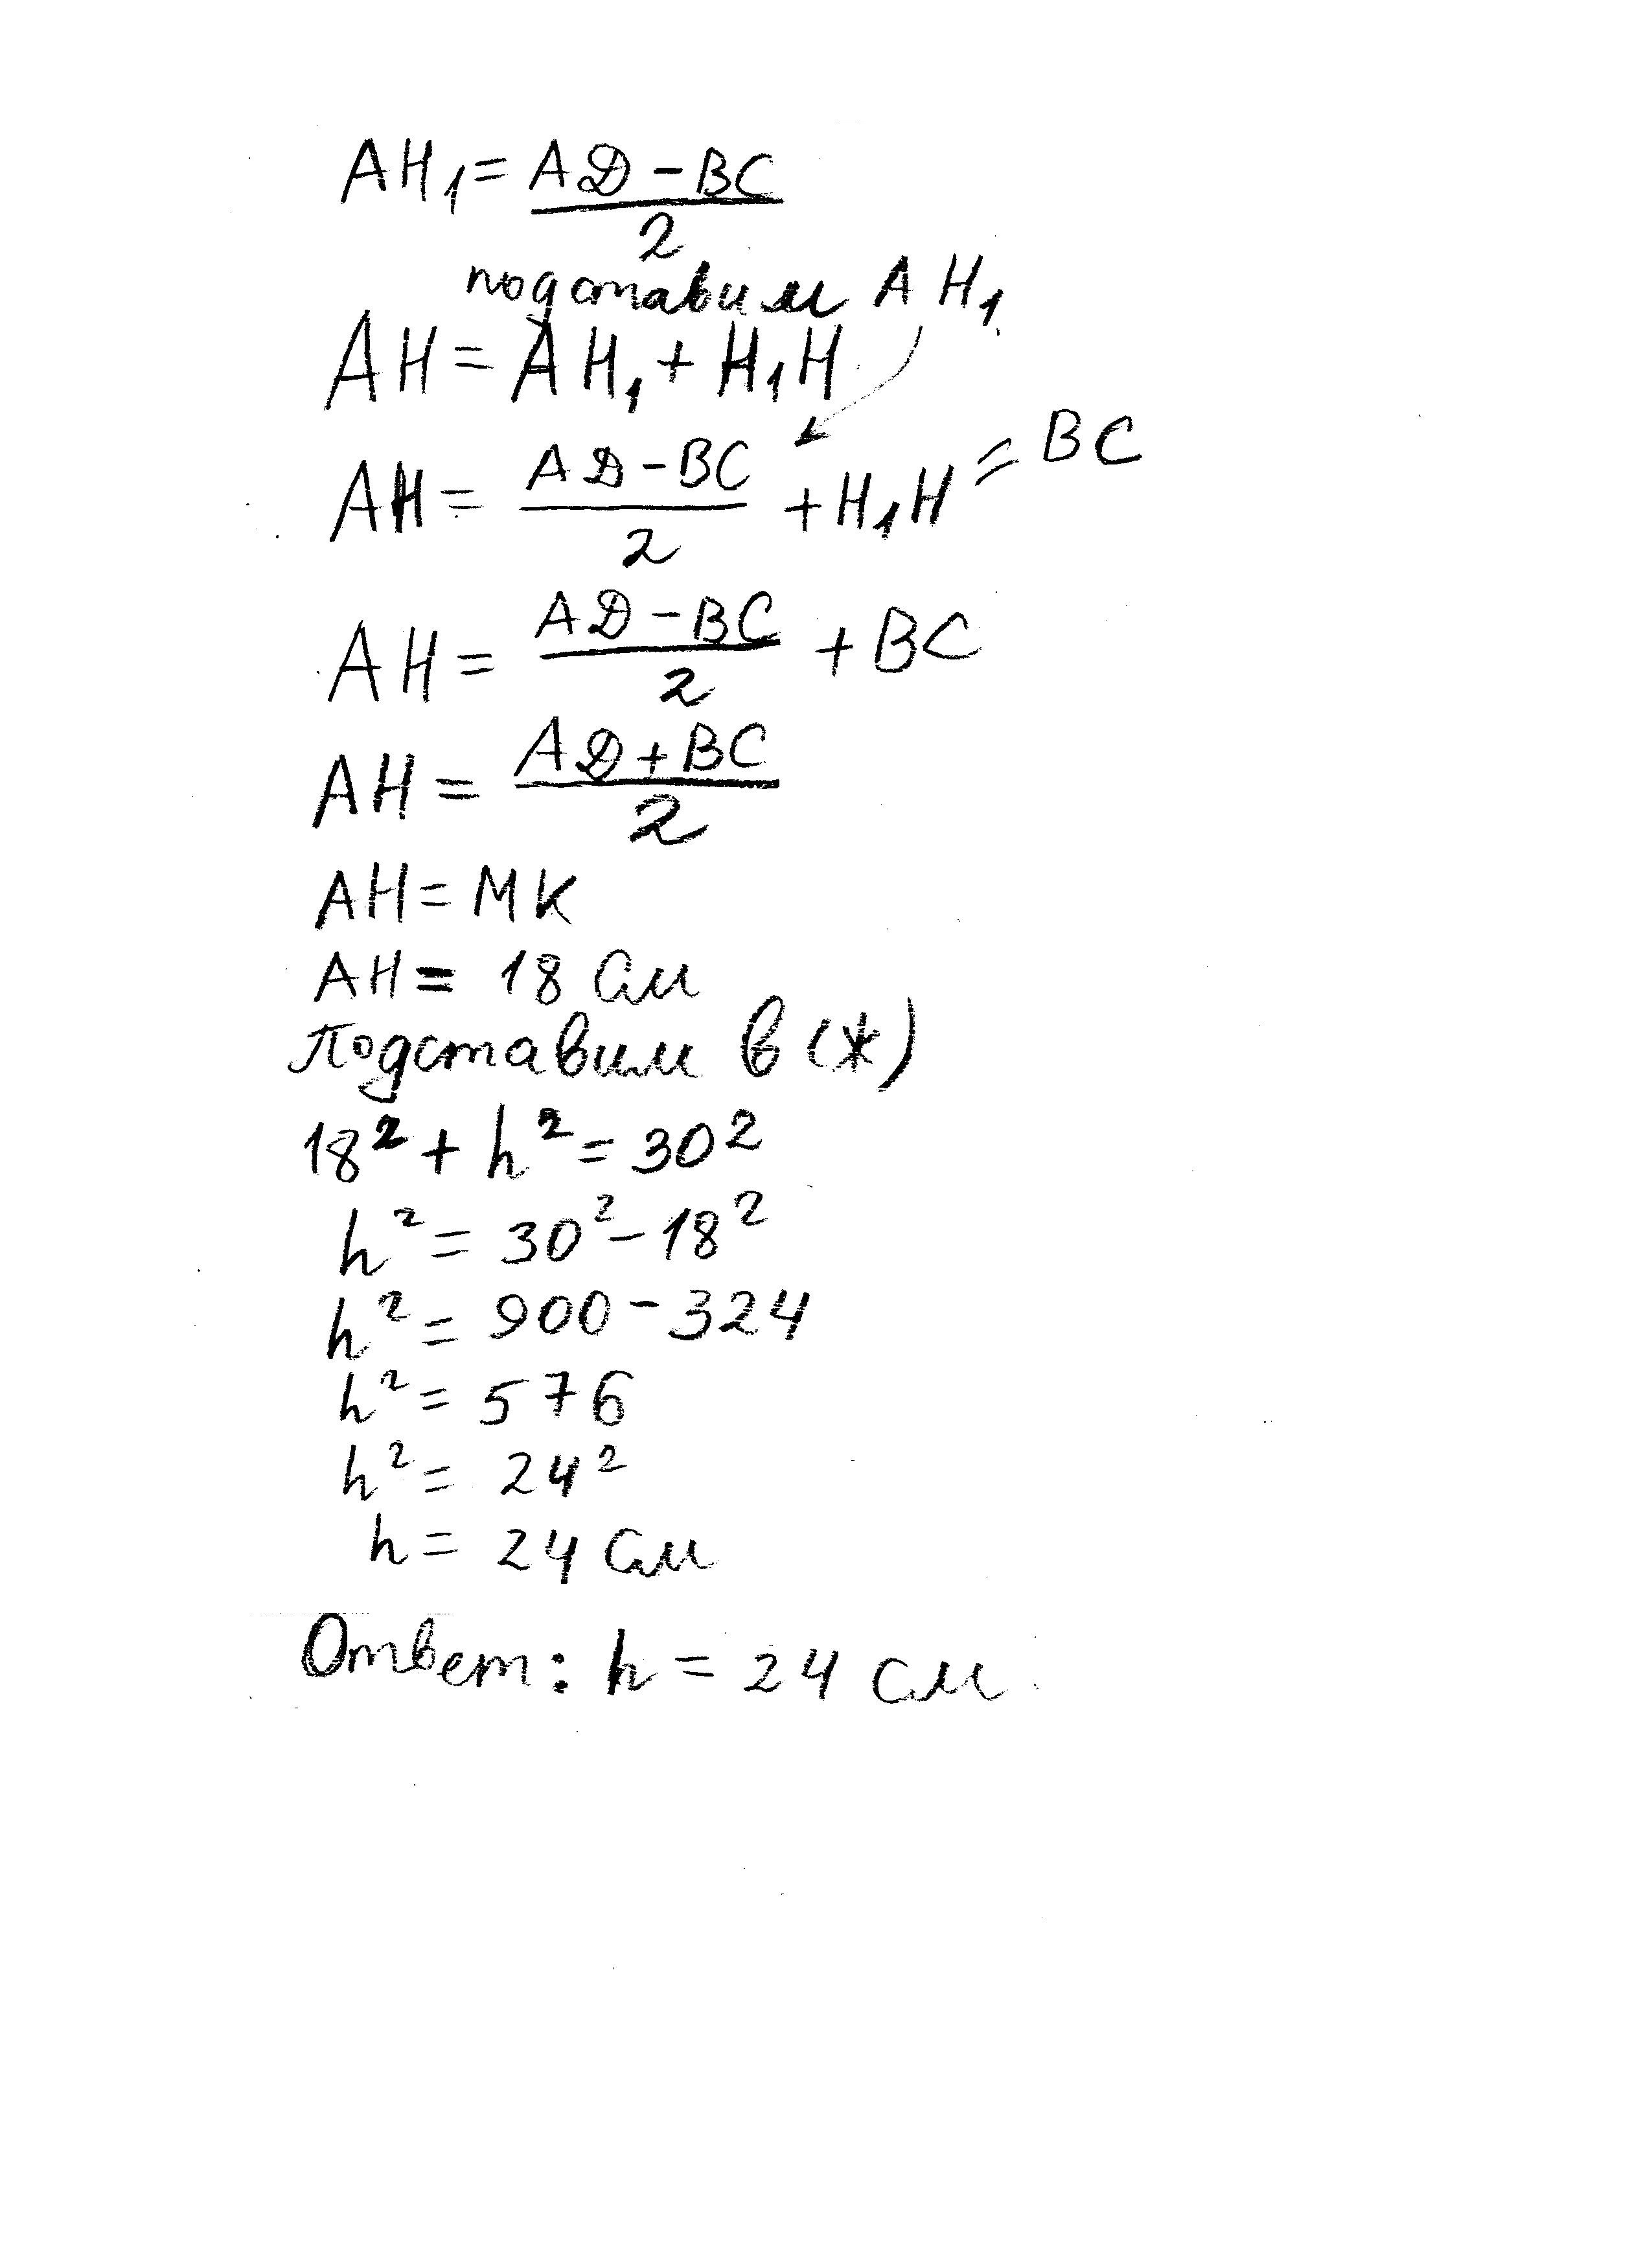 AH₁ = (AD - BC) / 2
подставим AH₁
AH = AH₁ + H₁H
AH = (AD - BC) / 2 + H₁H = BC
AH = (AD - BC) / 2 + BC
AH = (AD + BC) / 2
AH = MK
AH = 18 см
Подставим в (*)
18² + h² = 30²
h² = 30² - 18²
h² = 900 - 324
h² = 576
h² = 24²
h = 24 см
Ответ: h = 24 см